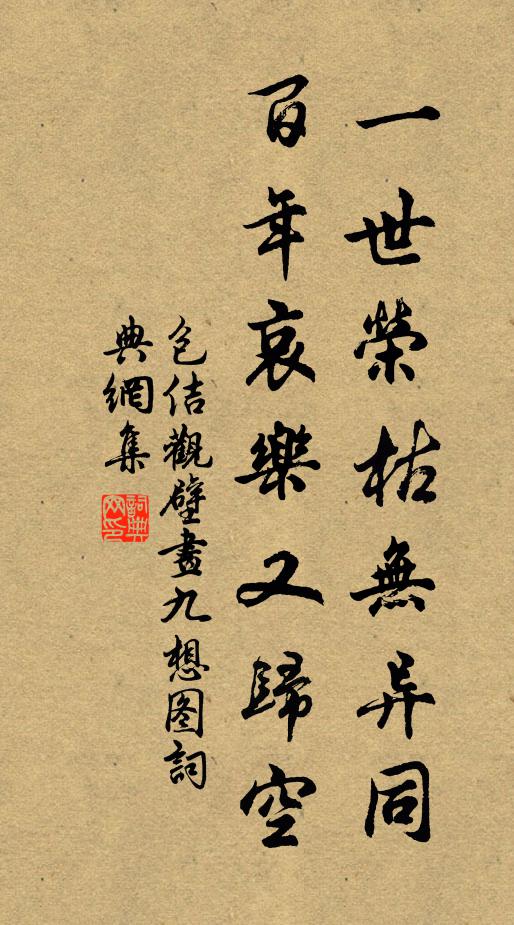 一世榮枯無异同
百年哀樂又歸空
包佶觀壁畫九想图詞
典網集
詞典網印